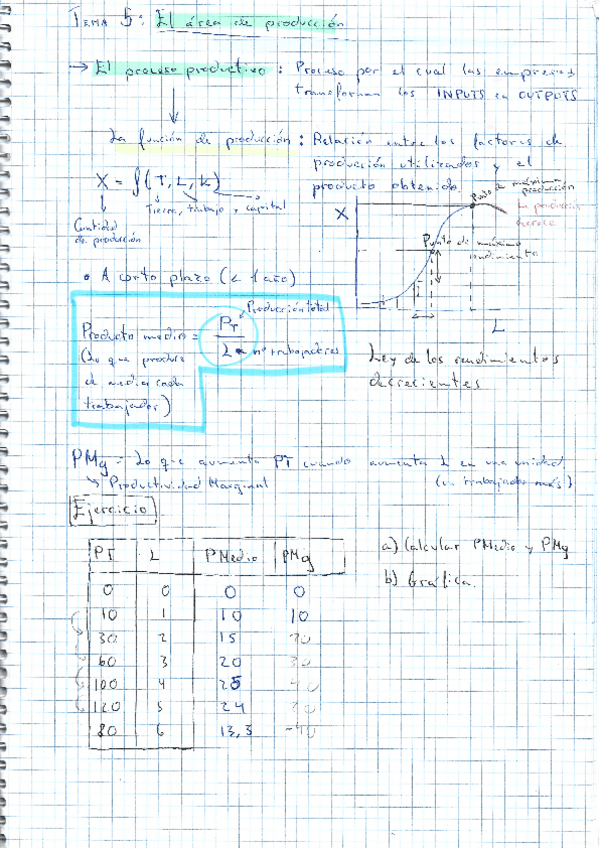 TEMA 5: El área de producción
→ El proceso productivo: Proceso por el cual las empresas
transforman los INPUTS en OUTPUTS
La función de producción: Relación entre los factores de
producción utilizados y el
producto obtenido.
X = f(T, L, K)
Tierra, trabajo y capital
Cantidad
de producción
Punto de máxima
producción
La producción
decrece
X
Punto de máximo
rendimiento
L
• A corto plazo (< 1 año)
Producción total
Producto medio = PT
L nº trabajadores
(Lo que produce
de media cada
trabajador)
Ley de los rendimientos
decrecientes
PMg = Lo que aumenta PT cuando aumenta L en una unidad.
Productividad Marginal (un trabajador más)
Ejercicio
a) Calcular PMedio y PMg
b) Gráfica.
PT L PMedio PMg
0 0 0 0
10 1 10 10
30 2 15 20
60 3 20 30
100 4 25 40
120 5 24 20
80 6 13,3 -40